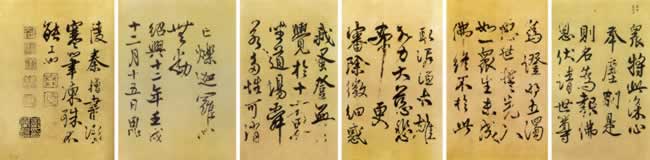 將此深心
奉塵剎是
則名為報佛
恩伏請世尊
為證明五濁
惡世誓先入
如一眾生未成
佛終不於此
取泥洹大雄
大力大慈悲
希更
審除微細惑
我早登無上
覺於十方界
坐道場舜
若多性可消
亡爍迦羅心
無動
紹興十二年壬戌
十二月十五日
陵秦檜書
寒筆凍殊不
能工也